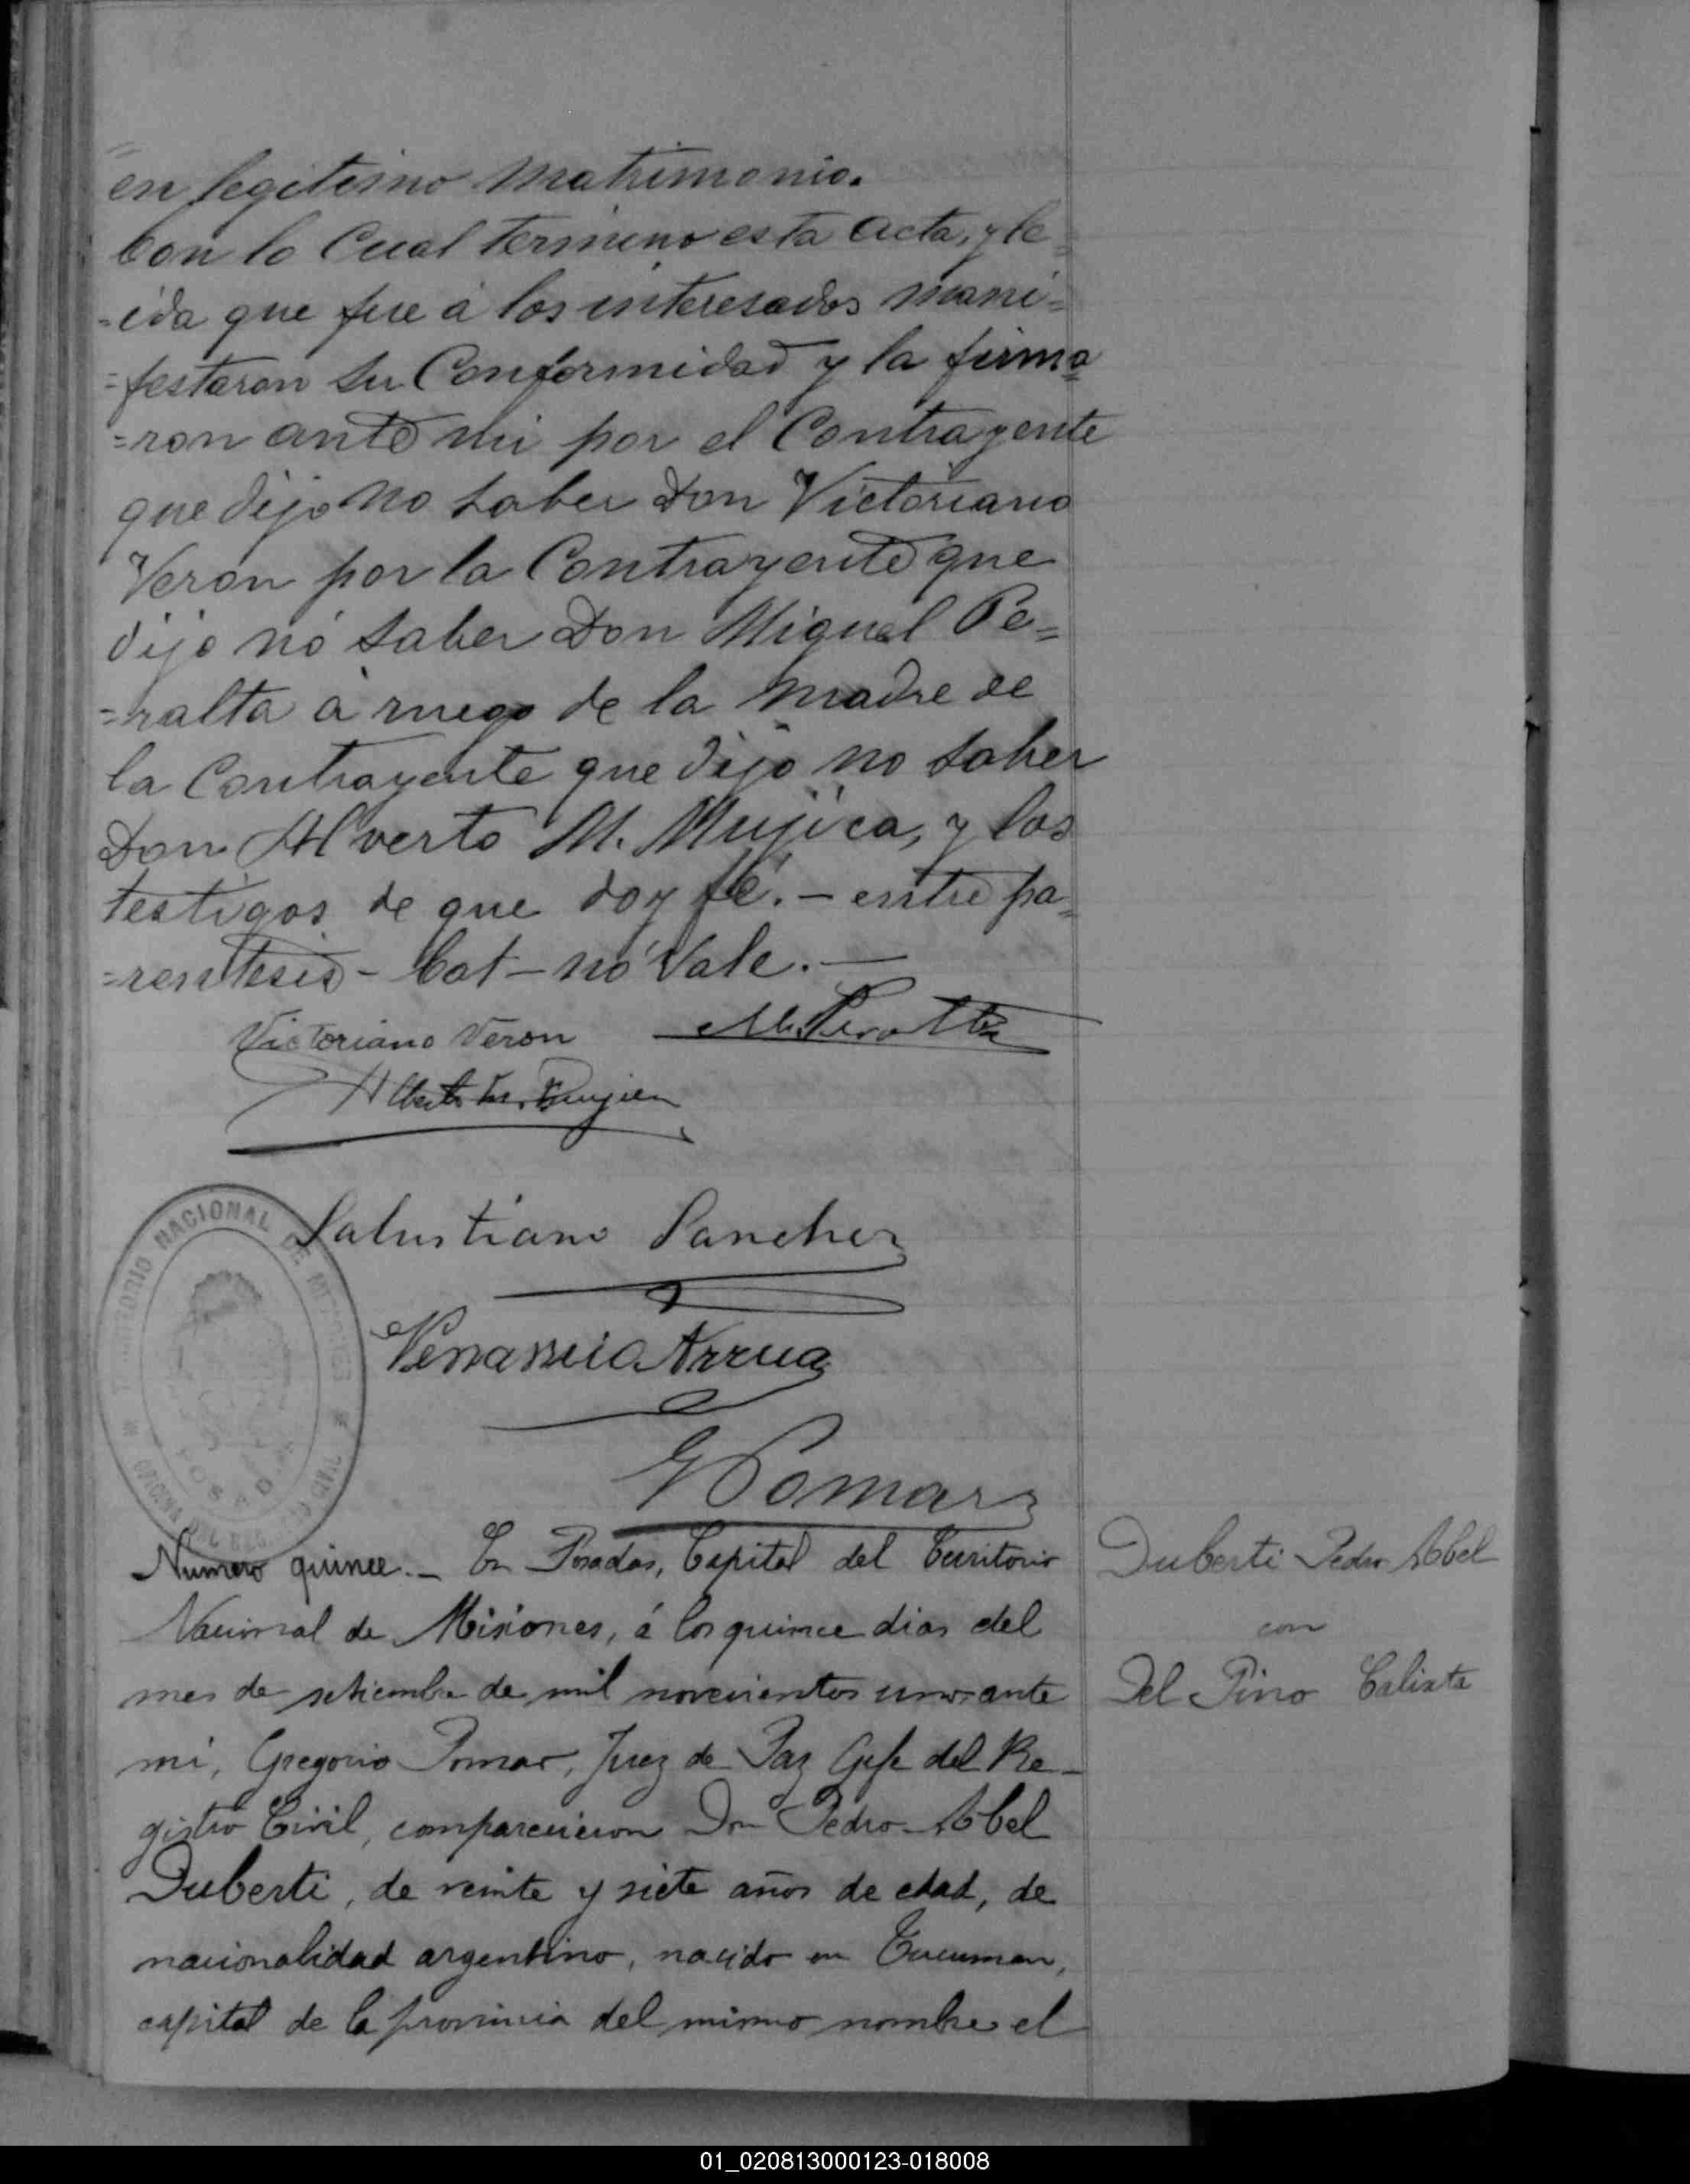 en legitimo Matrimonio.
Con lo Cual termino esta acta, y le=
=ida que fue á los interesados mani=
=festaron su Conformidad y la firma=
=ron ante mi por el Contrayente
que dijo no saber Don Victoriano
Veron por la Contrayente que
dijo nó saber Don Miguel Pe=
=ralta á ruego de la Madre de
la Contrayente que dijo no saber
Don Alverto M. Mujica, y los
testigos de que doy fé. - entre pa=
=rentesis - Cat - nó Vale. -
Victoriano Veron M. Peralta
Alberto M. Mujica
Salustiano Sanchez
Venancio Arrua
G Pomar
TERRITORIO NACIONAL DE MISIONES
OFICINA DEL REGISTRO CIVIL
POSADAS
Numero quince. - En Posadas, Capital del Territorio
Nacional de Misiones, á los quince dias del
mes de setiembre de mil novecientos uno, ante
mi, Gregorio Pomar, Juez de Paz Gefe del Re-
gistro Civil, comparecieron Don Pedro Abel
Duberti, de veinte y siete años de edad, de
nacionalidad argentino, nacido en Tucuman,
capital de la provincia del mismo nombre el
Duberti Pedro Abel
con
Del Pino Calixta
01_020813000123-018008